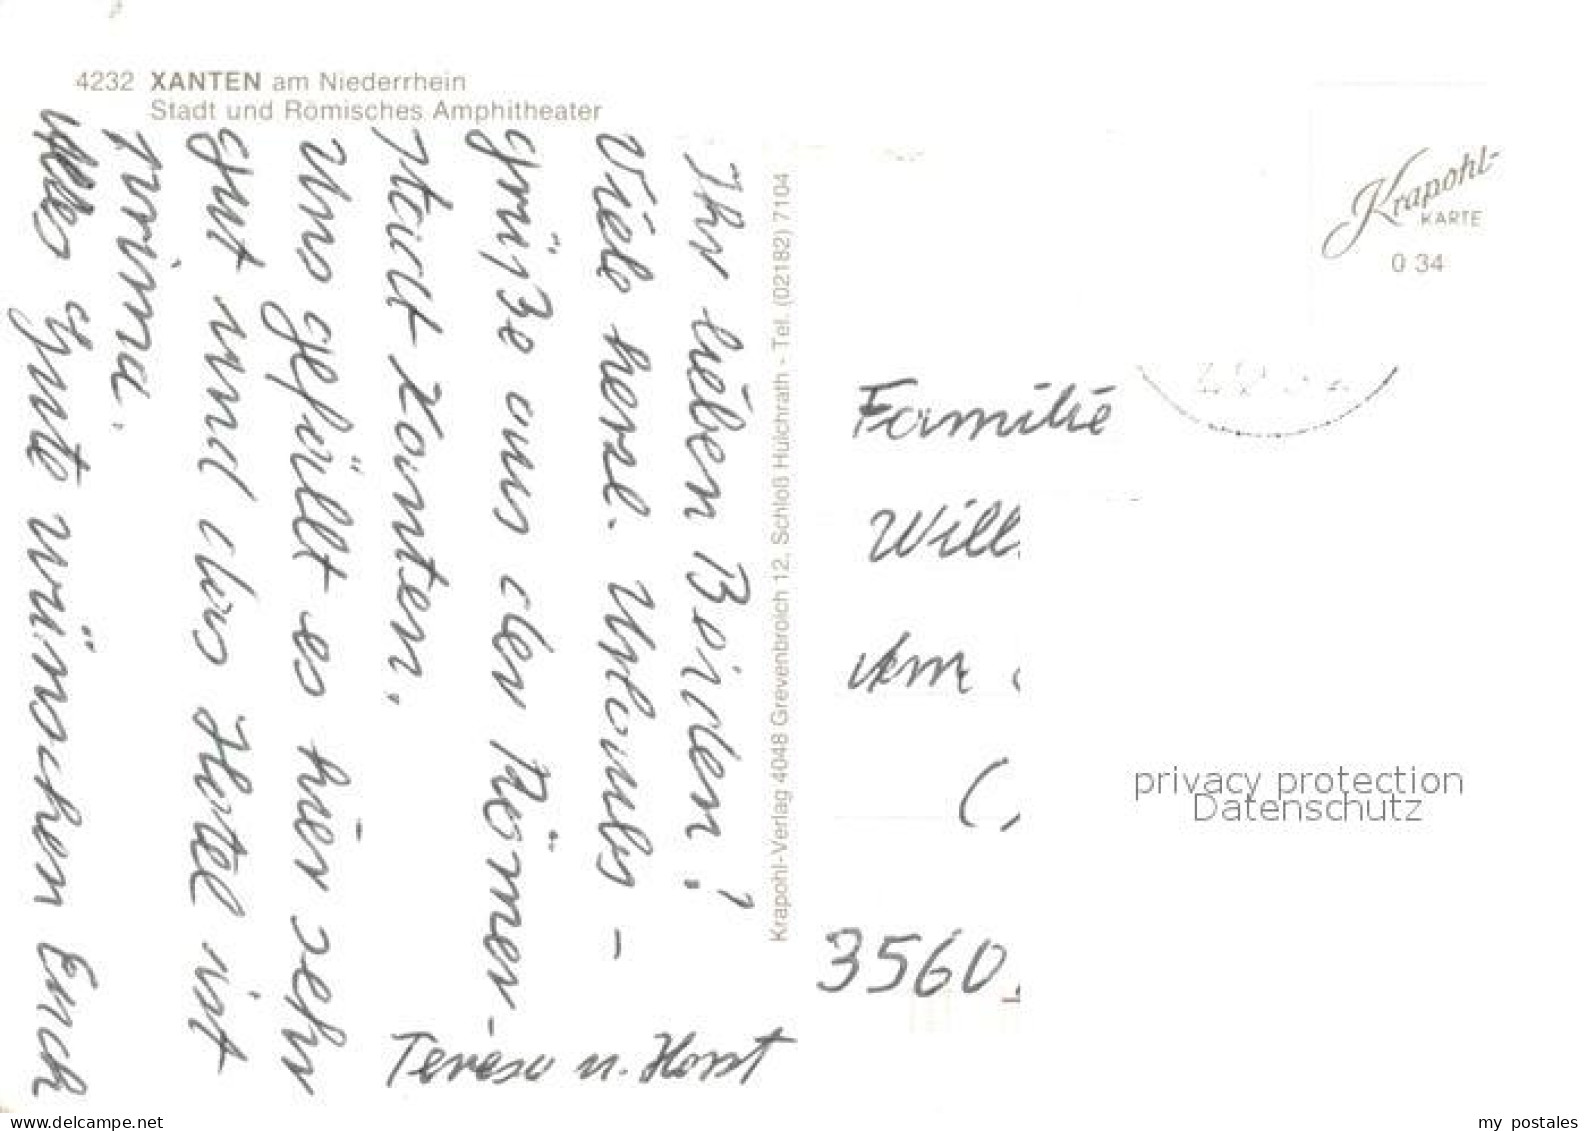 4232 XANTEN am Niederrhein
Stadt und Römisches Amphitheater
Ihr lieben Beiden!
Viele herzl. Urlaubs-
grüße aus der Römer-
stadt Xanten.
Uns gefällt es hier sehr
gut und das Hotel ist
prima.
Alles Gute wünschen Euch
Teresa u. Horst
Krapohl-Verlag 4048 Grevenbroich 12, Schloß Hülchrath - Tel. (02182) 7104
Krapohl-
KARTE
0 34
Familie
Will
Am
3560
privacy protection
Datenschutz
delcampe.net
my_postales